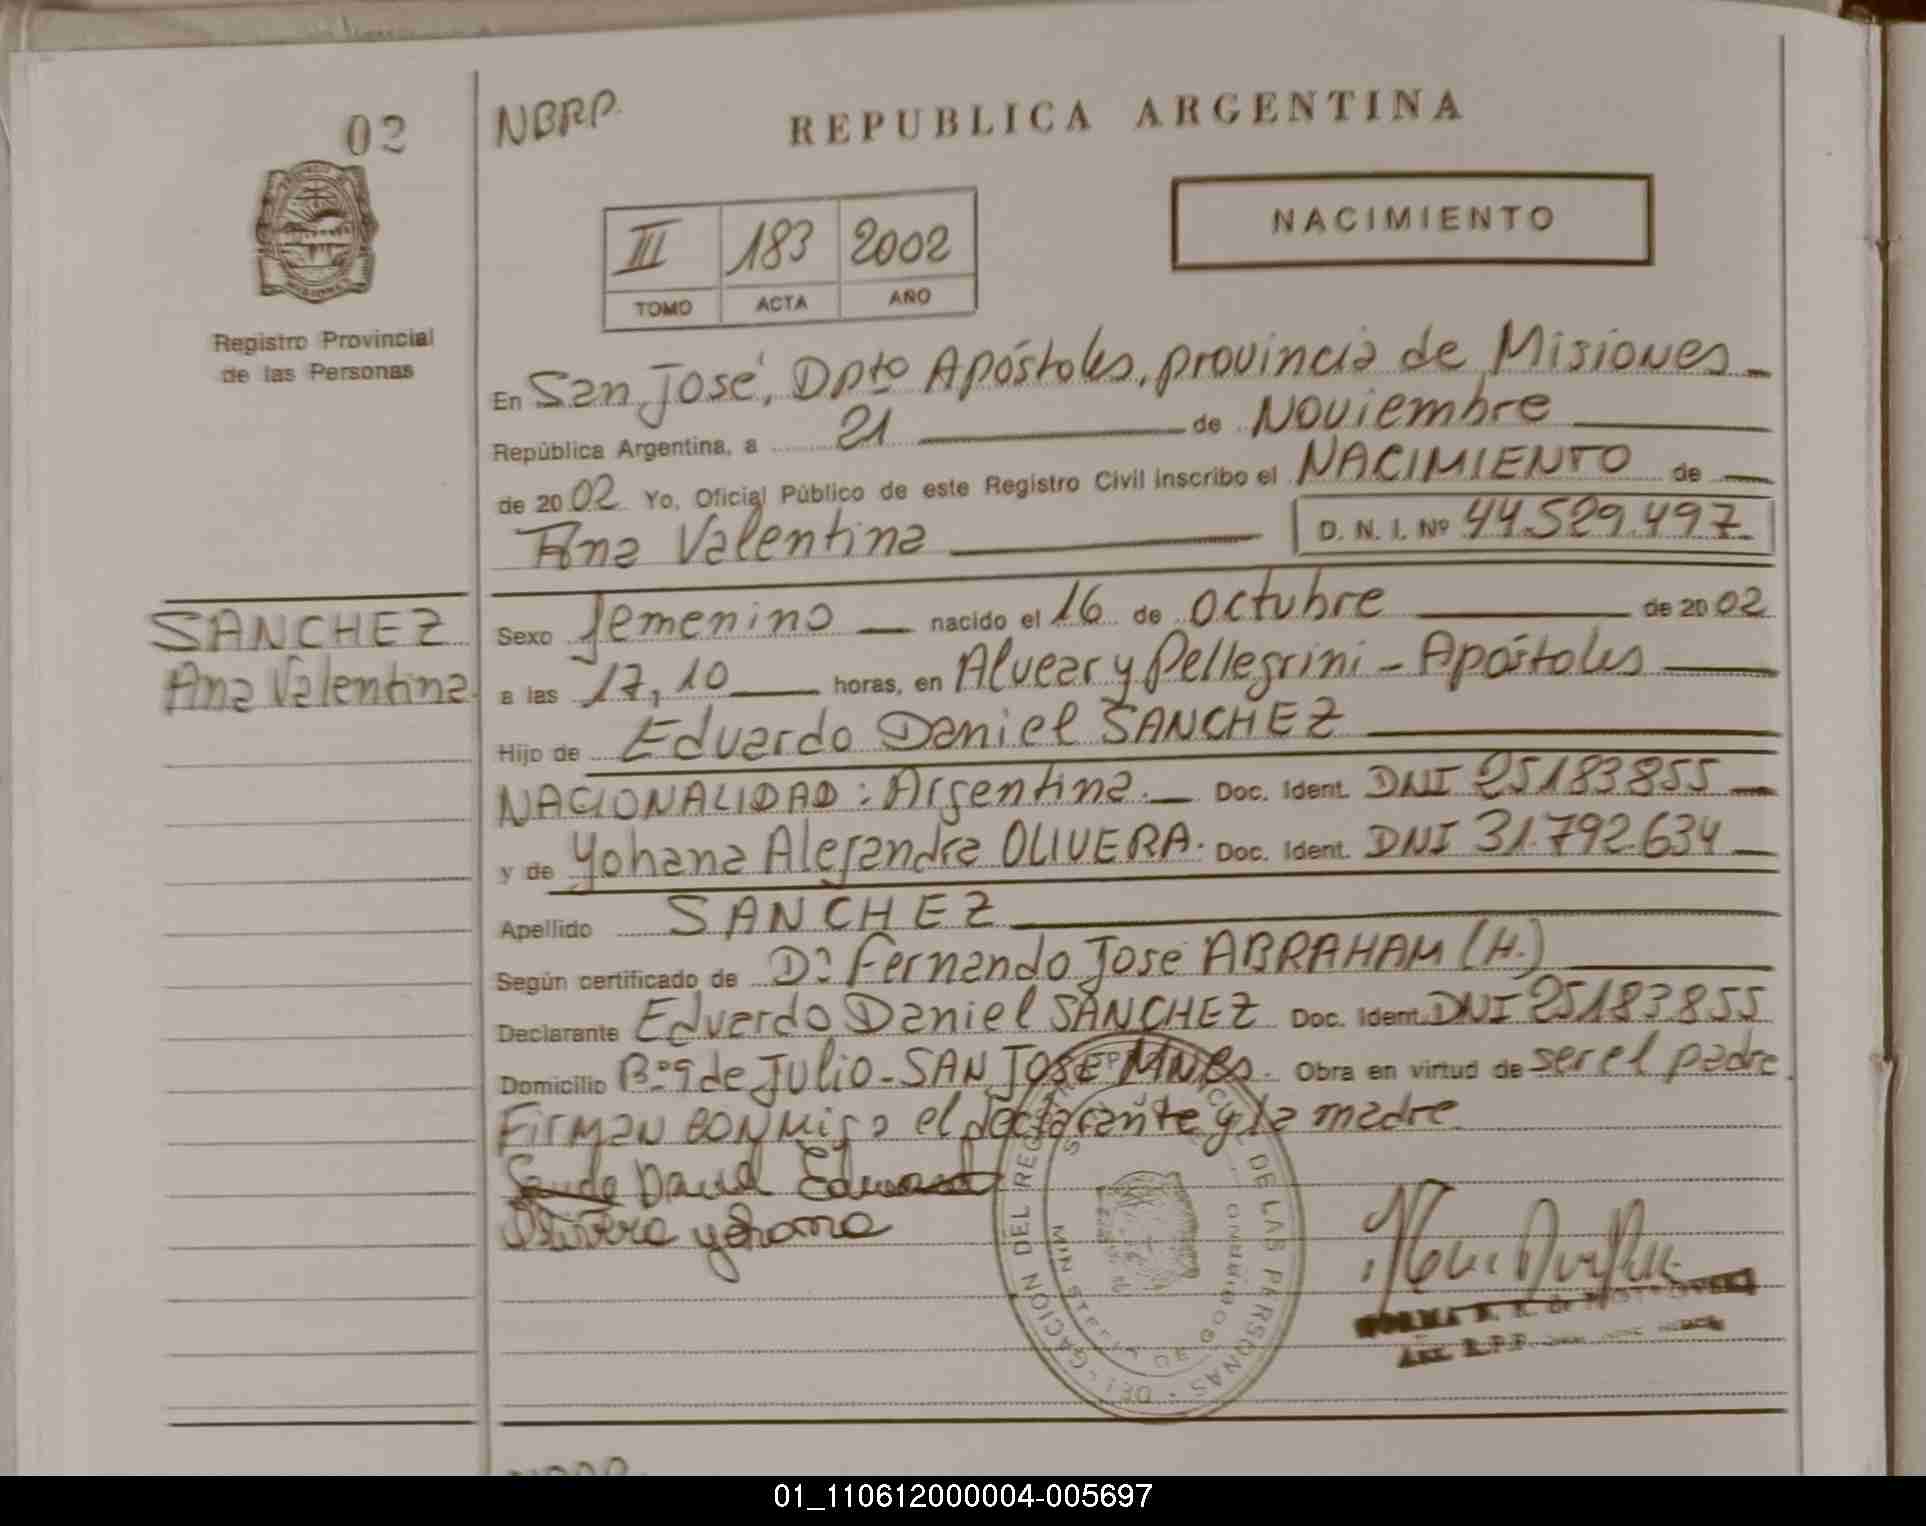 02
NBRP.
REPUBLICA ARGENTINA
III 183 2002
TOMO ACTA AÑO
NACIMIENTO
Registro Provincial
de las Personas
En San José, Dpto Apóstoles, provincia de Misiones
República Argentina, a 21 de Noviembre
de 2002 Yo, Oficial Público de este Registro Civil inscribo el NACIMIENTO de
Ana Valentina D. N. I. Nº 44.529.497
SANCHEZ
Ana Valentina
Sexo femenino nacido el 16 de octubre de 2002
a las 17,10 horas, en Alvear y Pellegrini - Apóstoles
Hijo de Eduardo Daniel SANCHEZ
NACIONALIDAD: Argentina. Doc. Ident. DNI 25183855
y de Yohana Alejandra OLIVERA. Doc. Ident. DNI 31.792.634
Apellido SANCHEZ
Según certificado de Dr. Fernando José ABRAHAM (H.)
Declarante Eduardo Daniel SANCHEZ Doc. Ident. DNI 25183855
Domicilio Bº 9 de Julio - SAN JOSE MNES. Obra en virtud de ser el padre.
Firman conmigo el declarante y la madre.
David
Olivera yohana
DEL DE LAS PERSONAS
DE GOBIERNO
NORMA
R.P.P.
01_110612000004-005697